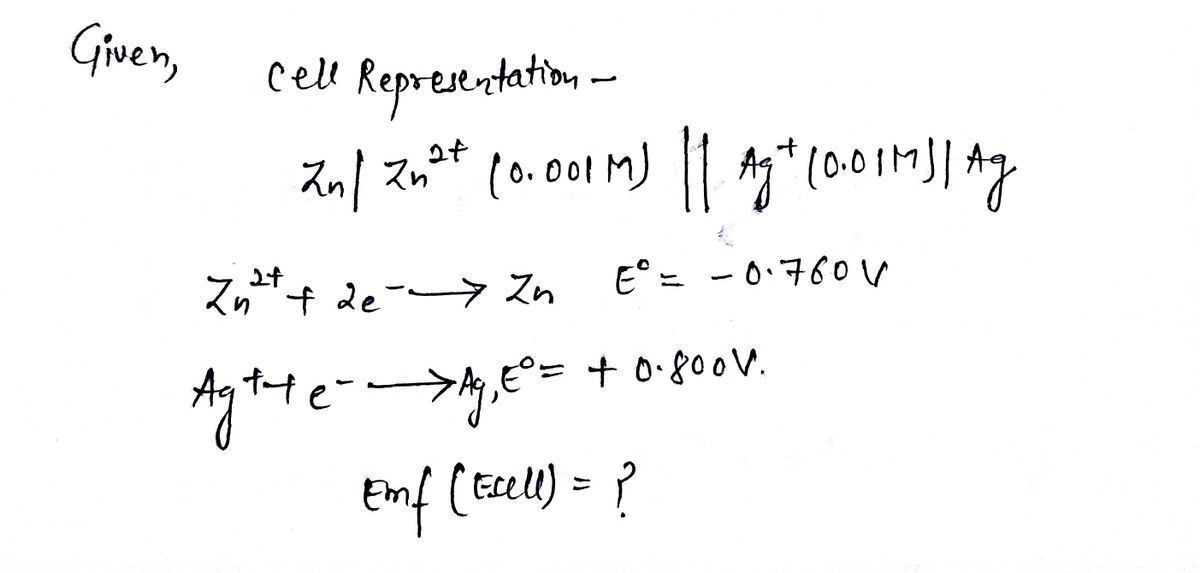 Given,
Cell Representation –
Zn| Zn²⁺ (0.001M) || Ag⁺ (0.01M)| Ag
Zn²⁺ + 2e⁻ → Zn E° = - 0.760 V
Ag⁺ + e⁻ → Ag, E° = + 0.800V.
Emf (Ecell) = ?